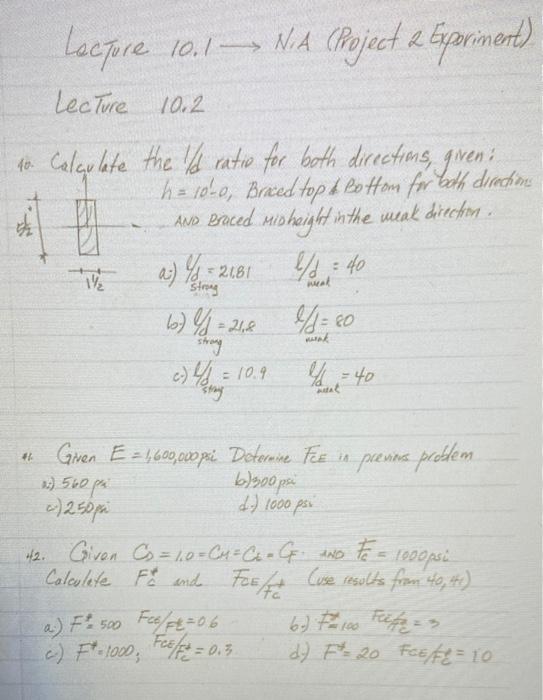 Lecture 10.1 → N.A (Project 2 Experiment)
Lecture 10.2
40. Calculate the l/d ratio for both directions, given:
h = 10'-0, Braced top & Bottom for both directions
AND Braced Midheight in the weak direction.
5½
1½
a.) l/d strong = 21.81 l/d weak = 40
b.) l/d strong = 21.8 l/d weak = 80
c.) l/d strong = 10.9 l/d weak = 40
41. Given E = 1,600,000 psi Determine FCE in previous problem
a.) 560 psi b.) 300 psi
c.) 250 psi d.) 1000 psi
42. Given CD = 1.0 = CM = Ct = CF. AND Fc = 1000 psi
Calculate Fc* and FCE/Fc* (use results from 40, 41)
a.) F* = 500 FCE/Fc* = 0.6 b.) F* = 100 FCE/Fc* = 3
c.) F* = 1000; FCE/Fc* = 0.3 d.) F* = 20 FCE/Fc* = 10